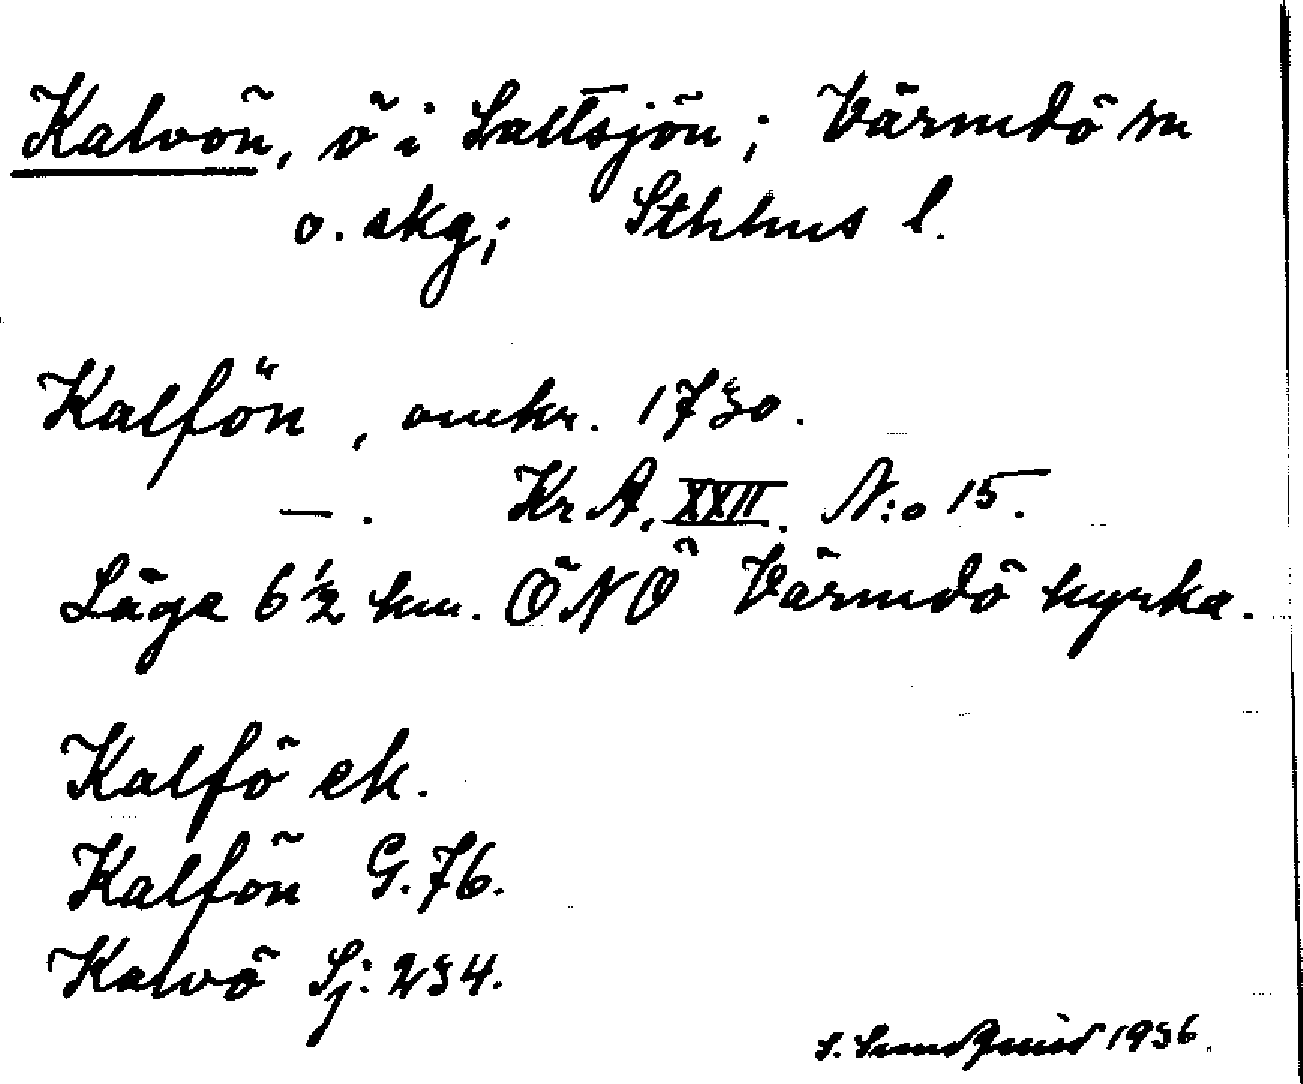 Kalvön, ö i Saltsjön; Värmdö sn
o. skg; Sthlms l.
Kalfön, omkr. 1730.
—. Kr A. XXII. N:o 15.
Läge 6 ½ km. ÖNÖ Värmdö kyrka.
Kalfö ek.
Kalfön G. 76.
Kalvö Sj: 234.
S. Sundquist 1936.